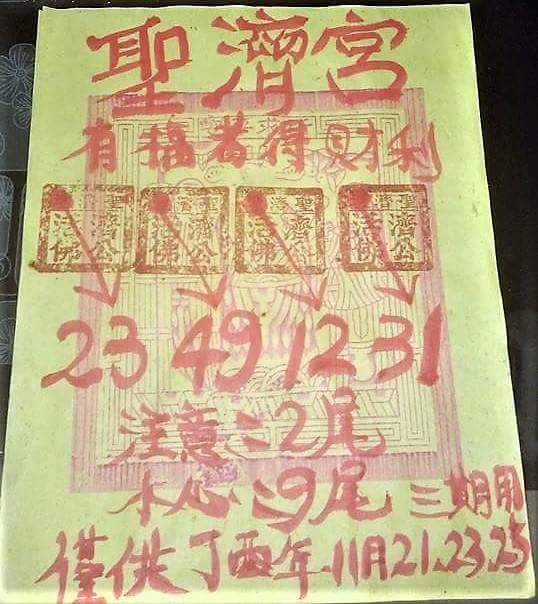 聖濟宮
有福者得財利
聖濟 濟公活佛 聖濟 濟公活佛 聖濟 濟公活佛 聖濟 濟公活佛
23 49 12 31
注意：2尾
本心：9尾 三期用
僅供丁酉年11月21.23.25